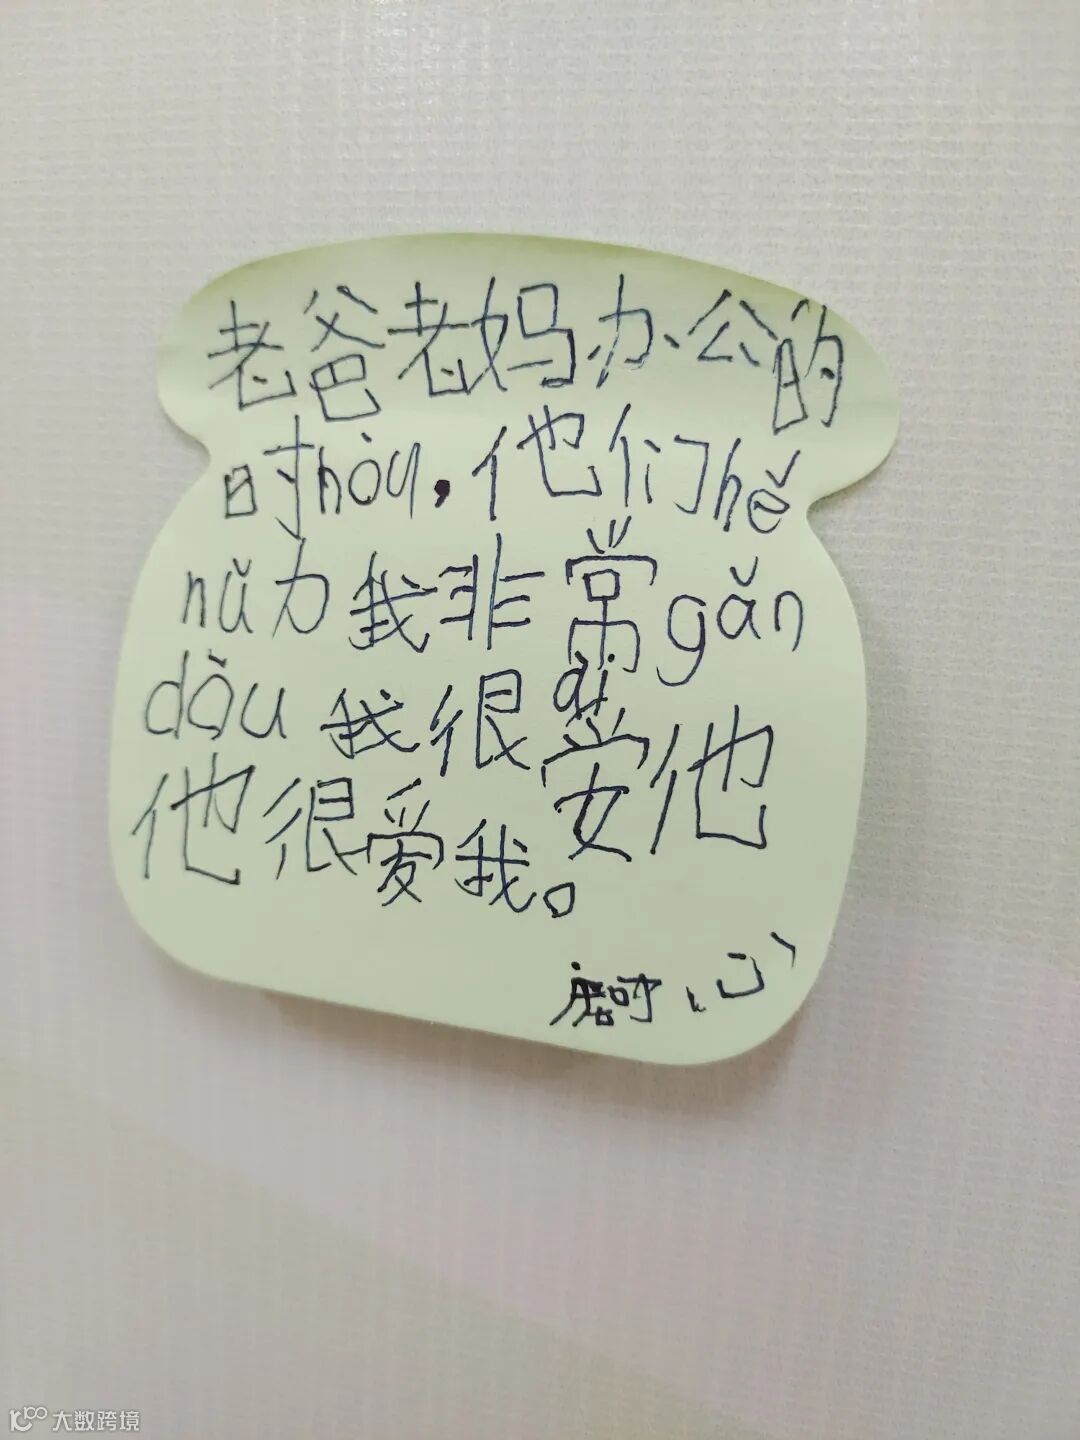 老爸老妈办公的
时hòu,他们hě
nǔ力我非常gǎn
dòu我很ài
他
他很爱我。
心
大数跨境